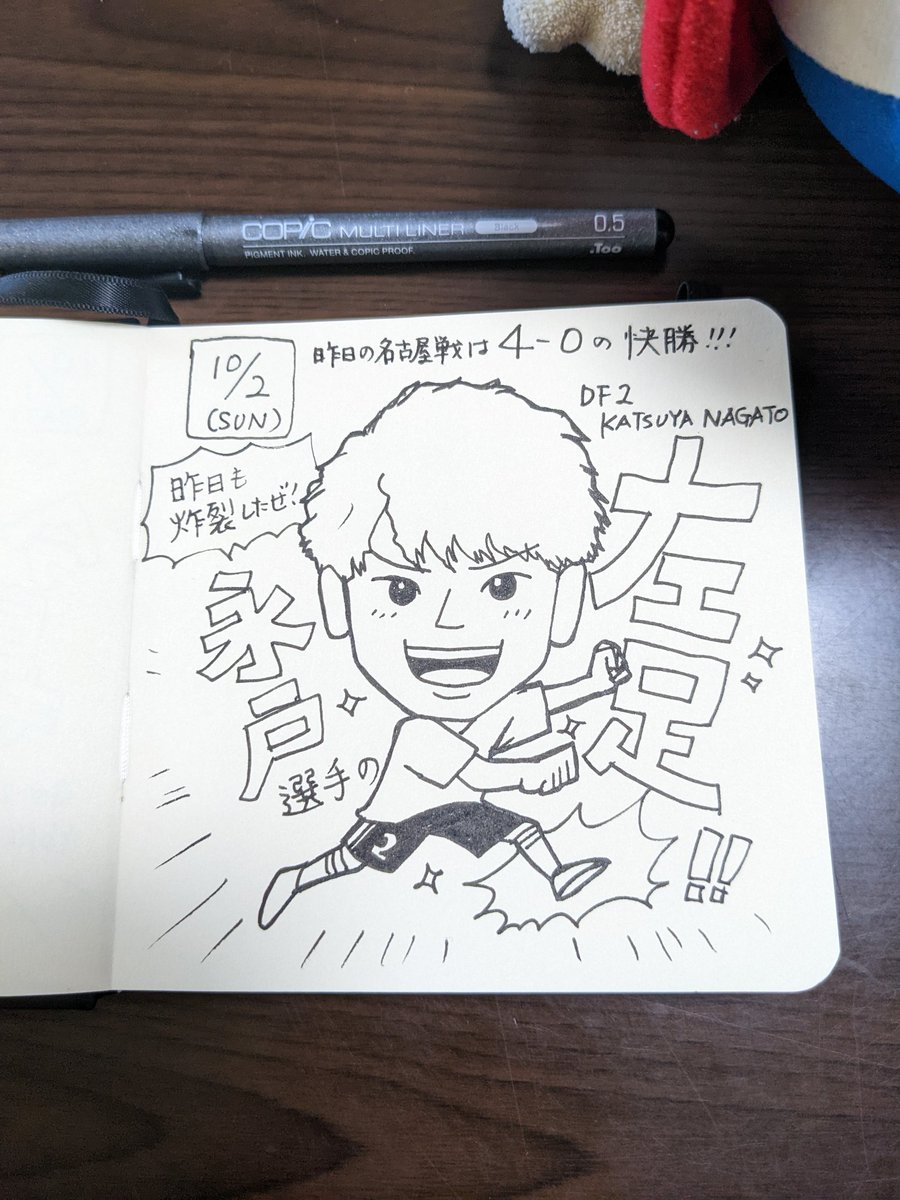 COPIC MULTILINER Black 0.5
PIGMENT INK. WATER & COPIC PROOF. .Too
10/2
(SUN)
昨日の名古屋戦は 4-0 の 快勝!!!
DF2
KATSUYA NAGATO
昨日も
炸裂したぜ!
永戸
選手の
左足
!!
2